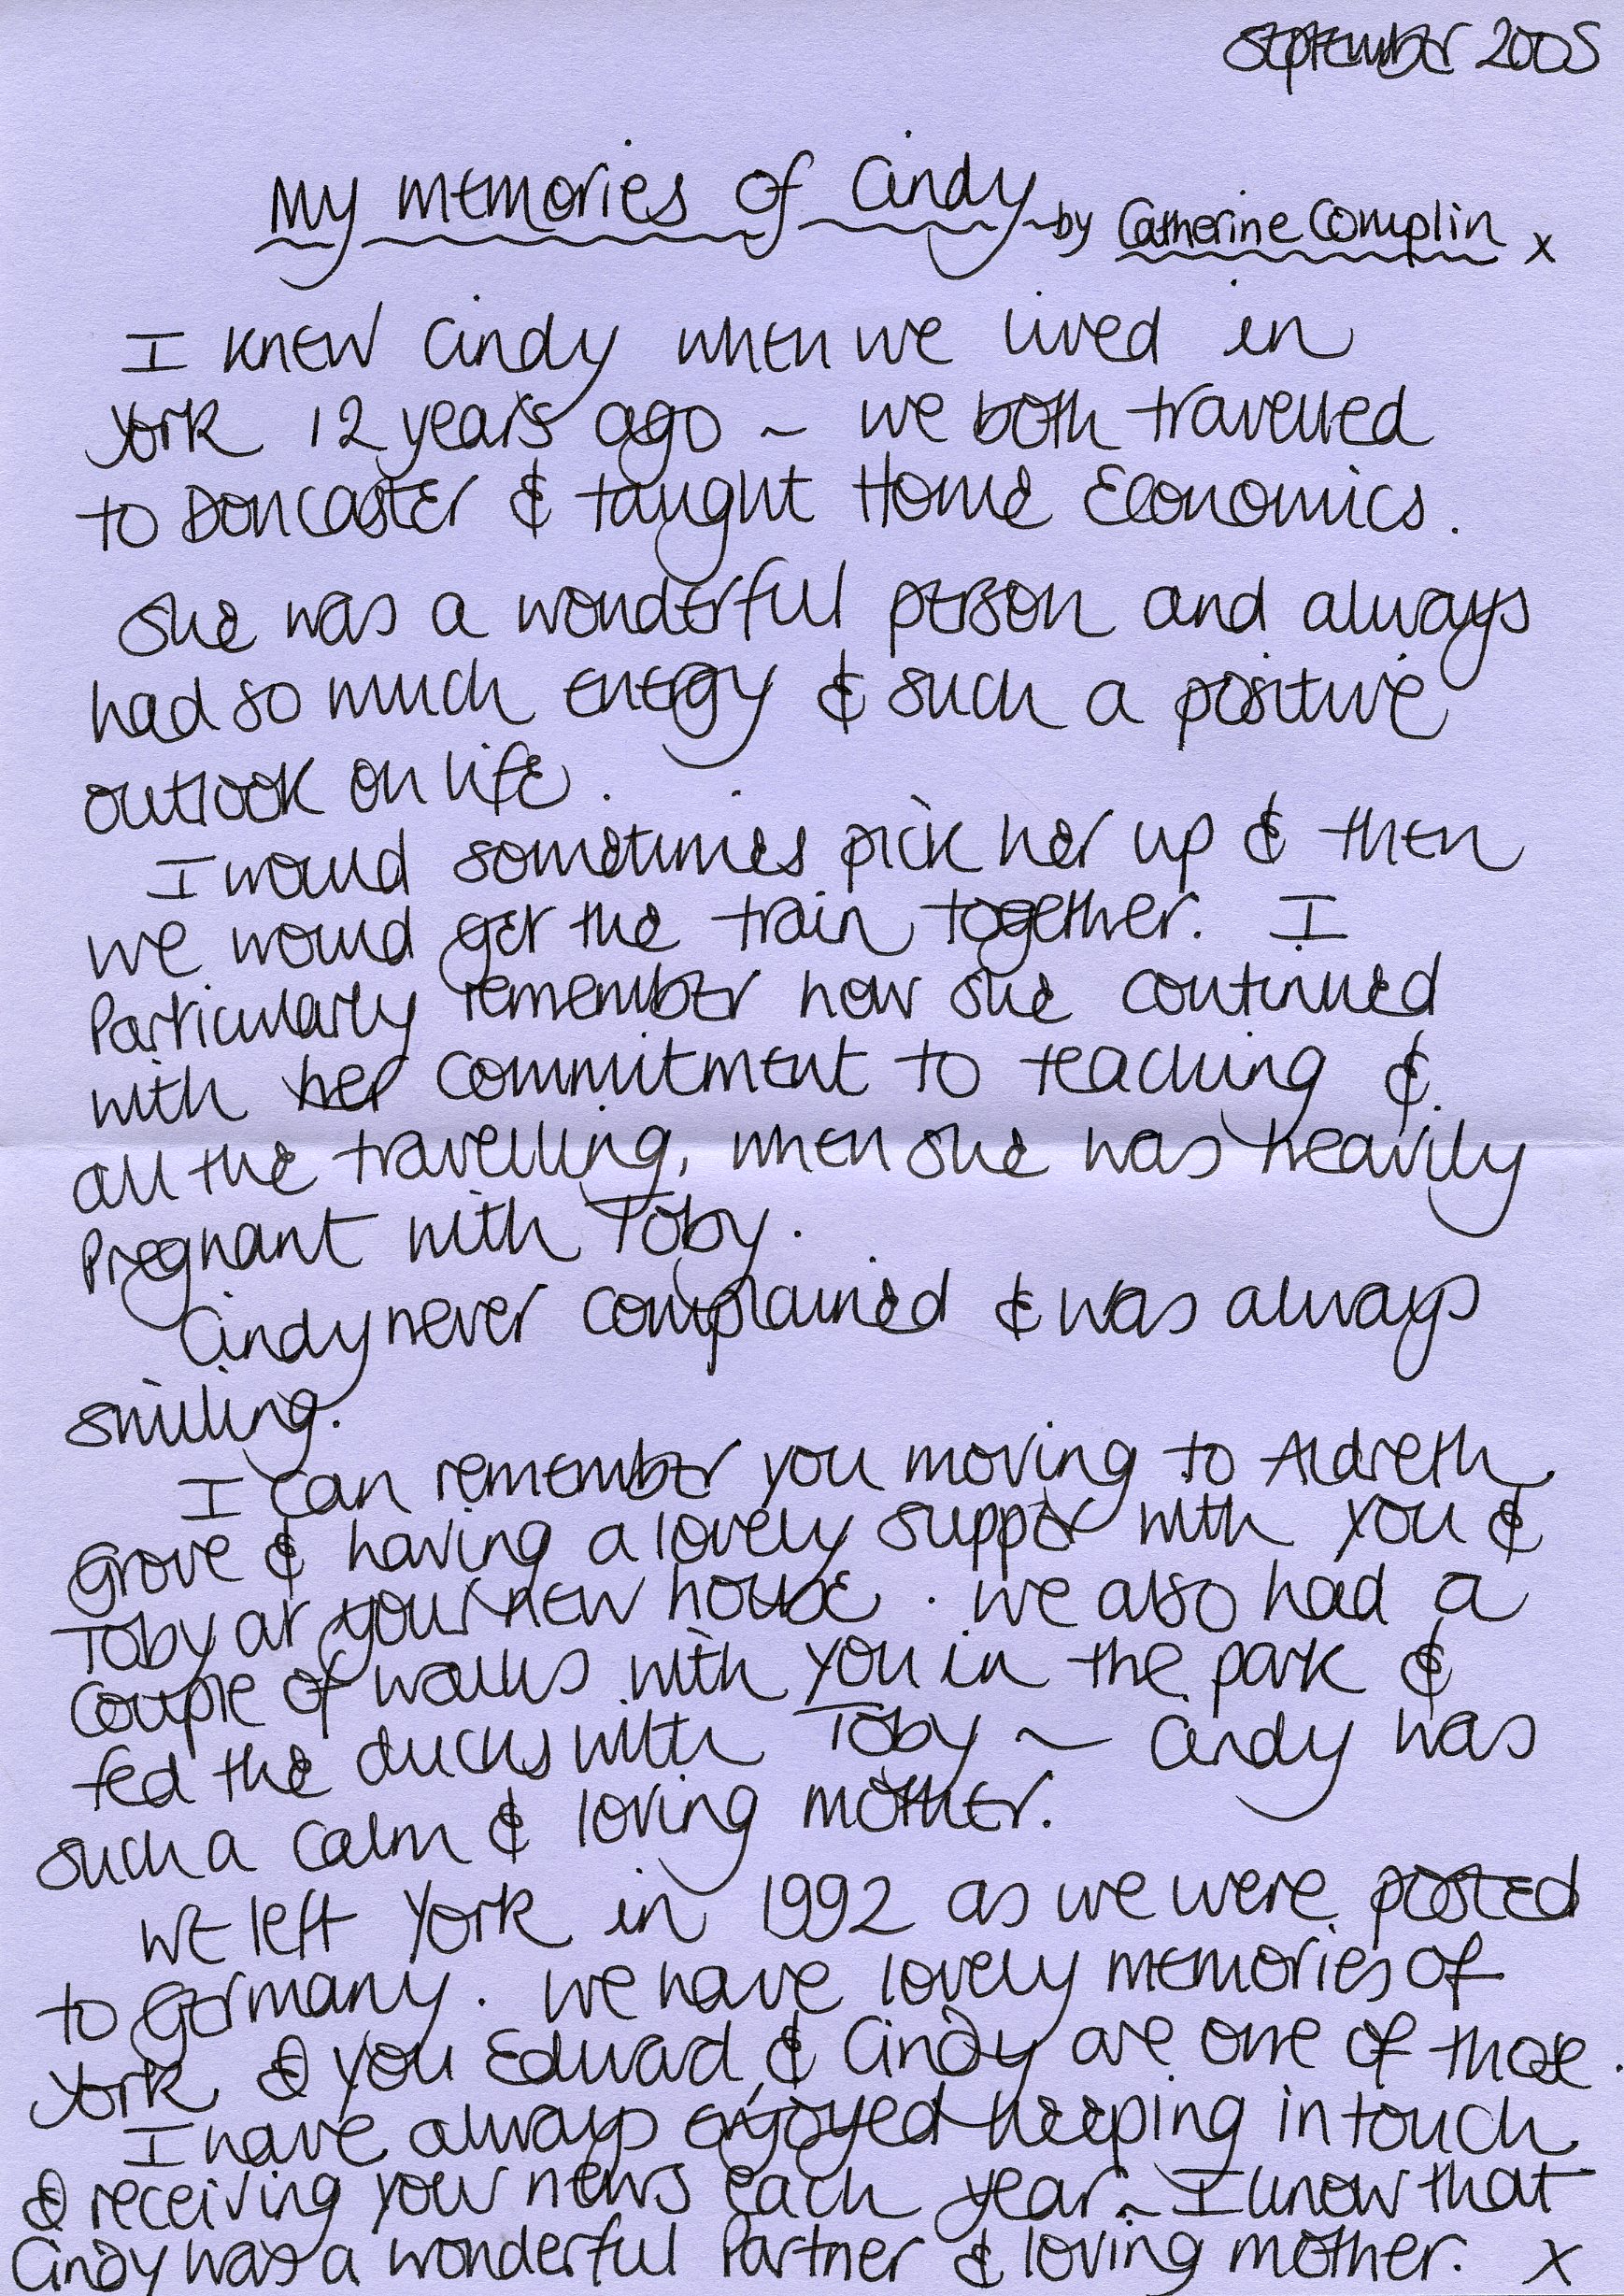 September 2005
My memories of Cindy ~ by Catherine Complin x
I knew Cindy when we lived in
York 12 years ago ~ we both travelled
to Doncaster & taught Home Economics.
She was a wonderful person and always
had so much energy & such a positive
outlook on life.
I would sometimes pick her up & then
we would get the train together. I
Particularly remember how she continued
with her commitment to teaching &
all the travelling, when she was heavily
Pregnant with Toby.
Cindy never complained & was always
smiling.
I can remember you moving to Aldreth
Grove & having a lovely supper with you &
Toby at your new house. We also had a
couple of walks with you in the park &
fed the ducks with Toby ~ Cindy was
such a calm & loving mother.
We left York in 1992 as we were posted
to Germany. We have lovely memories of
York & you Edward & Cindy are one of those.
I have always enjoyed keeping in touch
& receiving your news each year ~ I know that
Cindy was a wonderful Partner & loving mother. x